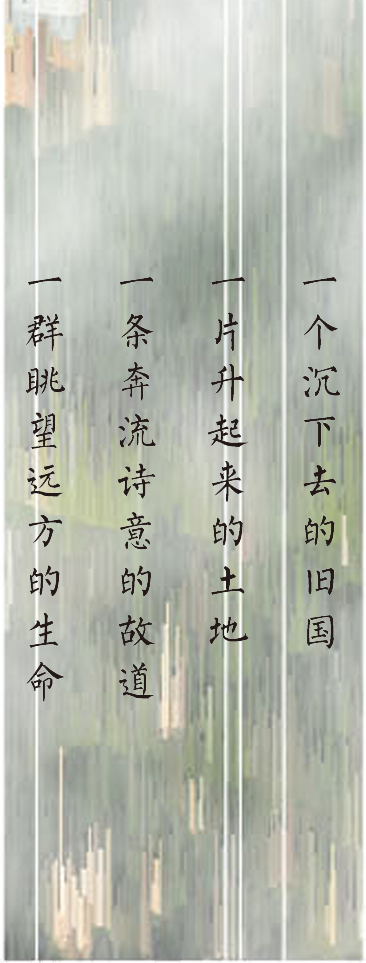 一个沉下去的旧国
一片升起来的土地
一条奔流诗意的故道
一群眺望远方的生命